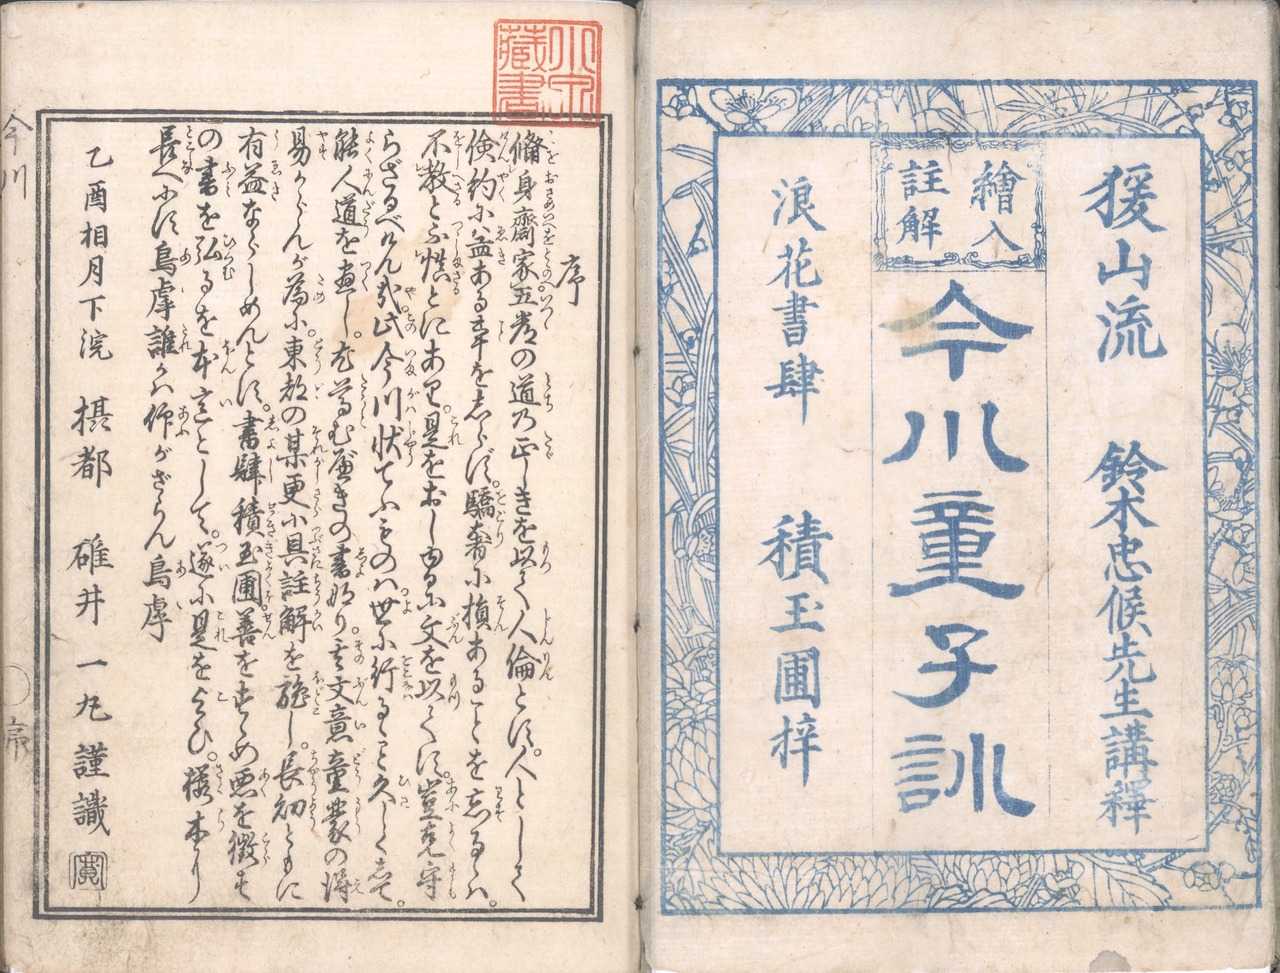 猨山流 鈴木忠候先生講釋
繪入
註解
今川童子訓
浪花書肆 積玉圃梓
序
脩身齋家五常の道乃正しきを以て人倫とす。人として
倹約に益ある事をしらず。驕奢に損あることを忘るゝハ。
不教と不慎とにあり。是をおしゆるに文を以てす。豈克守
らざるべけん哉此今川状てふものハ世に行ること久しくして。
能人道を盡し。尤尊む べきの書なり。其文意童蒙の得
易からんが為に。東都の某更に具註解を施し。長初ともに
有益ならしめんとす。書肆積玉圃善をすゝめ悪を徴す
の書を弘るを本意として。遂に是を乞ひ。櫻木に
長へにす烏虖誰かハ仰がざらん烏虖
乙酉相月下浣 摂都 碓井一丸謹識
今川
序